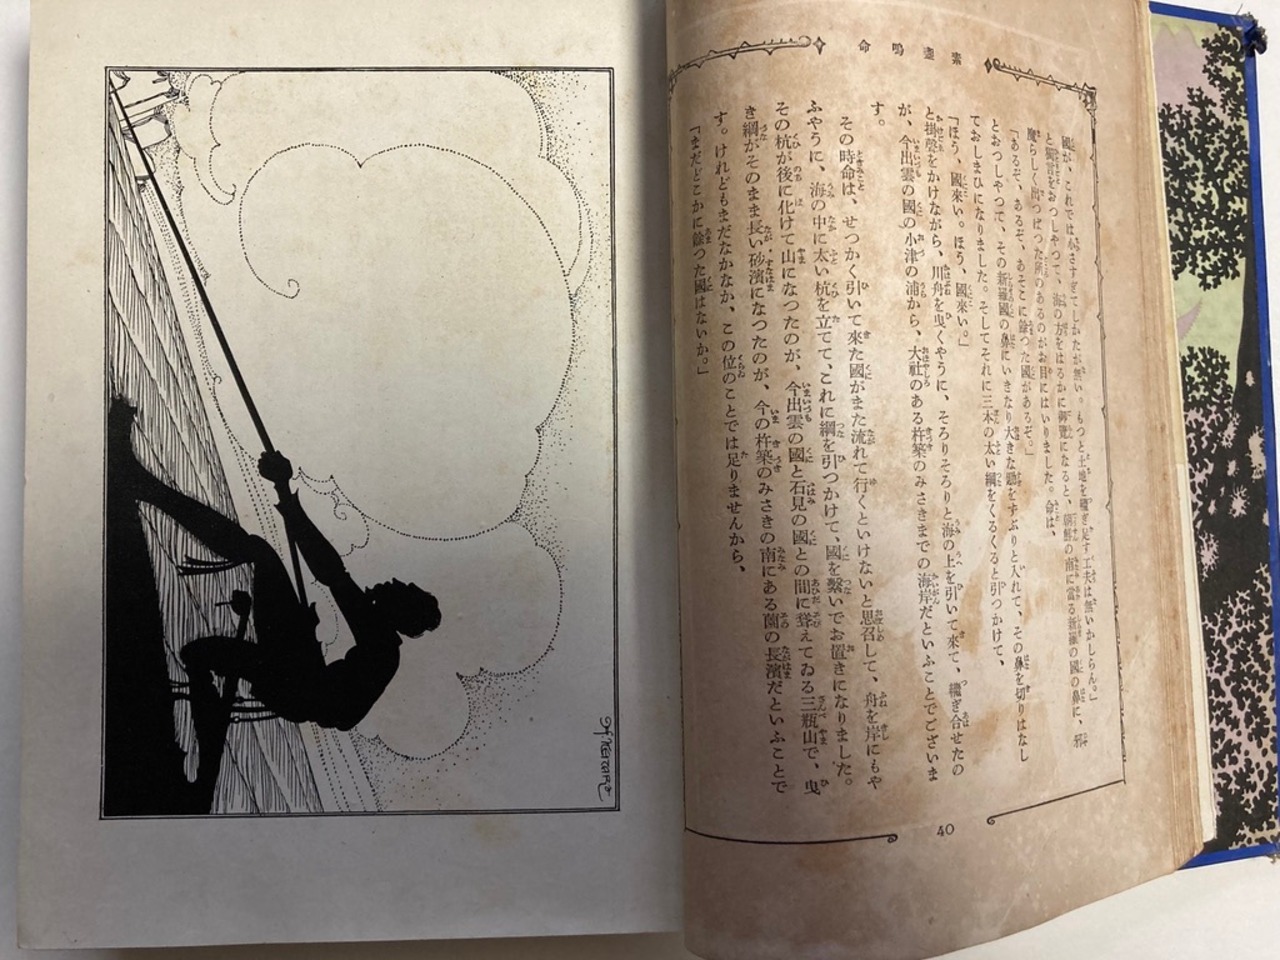 素盞嗚命
國が、これでは小さすぎてしかたが無い。もつと土地を繼ぎ足す工夫は無いかしらん。」
と獨言をおつしやつて、海の方をはるかに御覽になると、朝鮮の南に當る新羅の國の鼻に、邪
魔らしく出つぱつた所のあるのがお目にはいりました。命は、
「あるぞ、あるぞ、あそこに餘つた國があるぞ。」
とおつしやつて、その新羅國の鼻にいきなり大きな鋤をずぶりと入れて、その鼻を切りはなし
ておしまひになりました。そしてそれに三本の太い綱をくるくると引つかけて、
「ほう、國來い。ほう、國來い。」
と掛聲をかけながら、川舟を曳くやうに、そろりそろりと海の上を引いて來て、繼ぎ合せたの
が、今出雲の國の小津の浦から、大社のある杵築のみさきまでの海岸だといふことでございま
す。
その時命は、せつかく引いて來た國がまた流れて行くといけないと思召して、舟を岸にもや
ふやうに、海の中に太い杭を立てて、これに綱を引つかけて、國を繋いでお置きになりました。
その杭が後に化けて山になつたのが、今出雲の國と石見の國との間に聳えてゐる三瓶山で、曳
き綱がそのまま長い砂濱になつたのが、今の杵築のみさきの南にある薗の長濱だといふことで
す。けれどもまだなかなか、この位のことでは足りませんから、
「まだどこかに餘つた國はないか。」
40